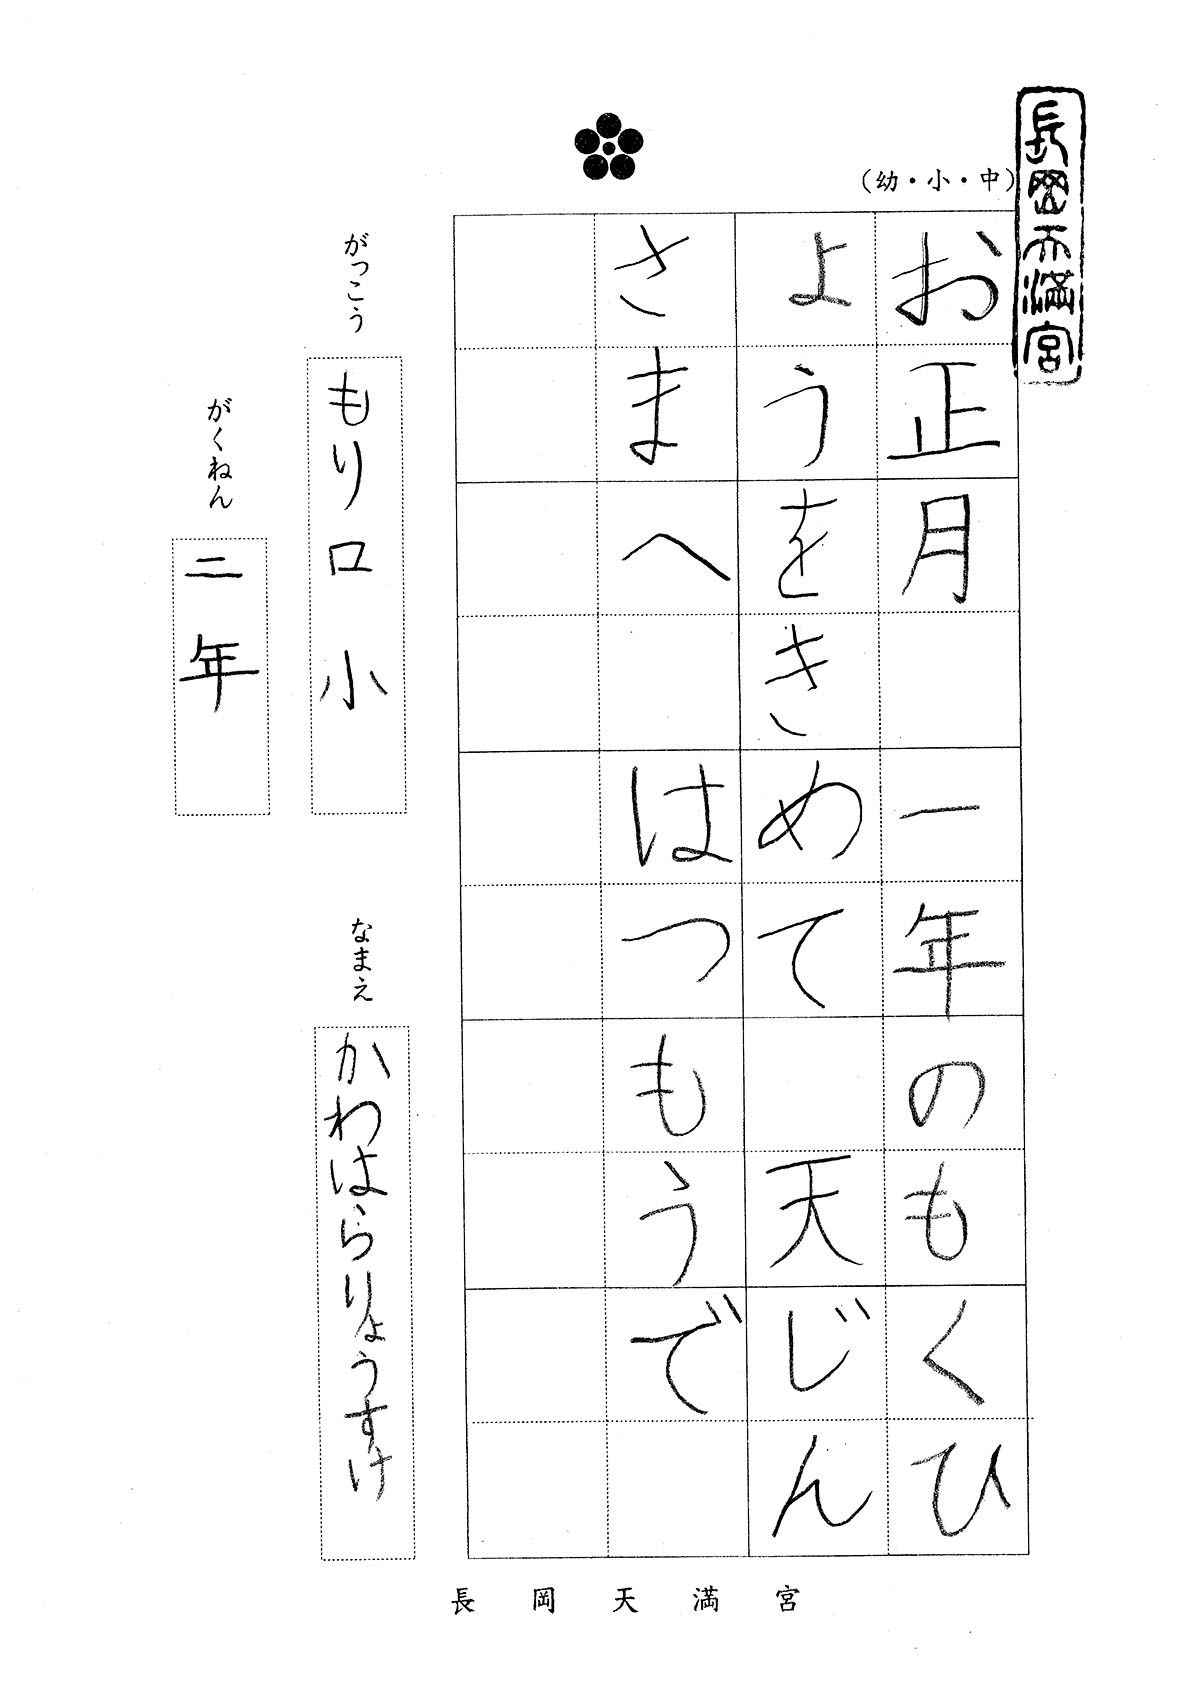 長岡天満宮
(幼・小・中)
お正月 一年のもくひ
ようをきめて 天じん
さまへ はつもうで
がっこう
もり口小
がくねん
二年
なまえ
かわはらりょうすけ
長岡天満宮